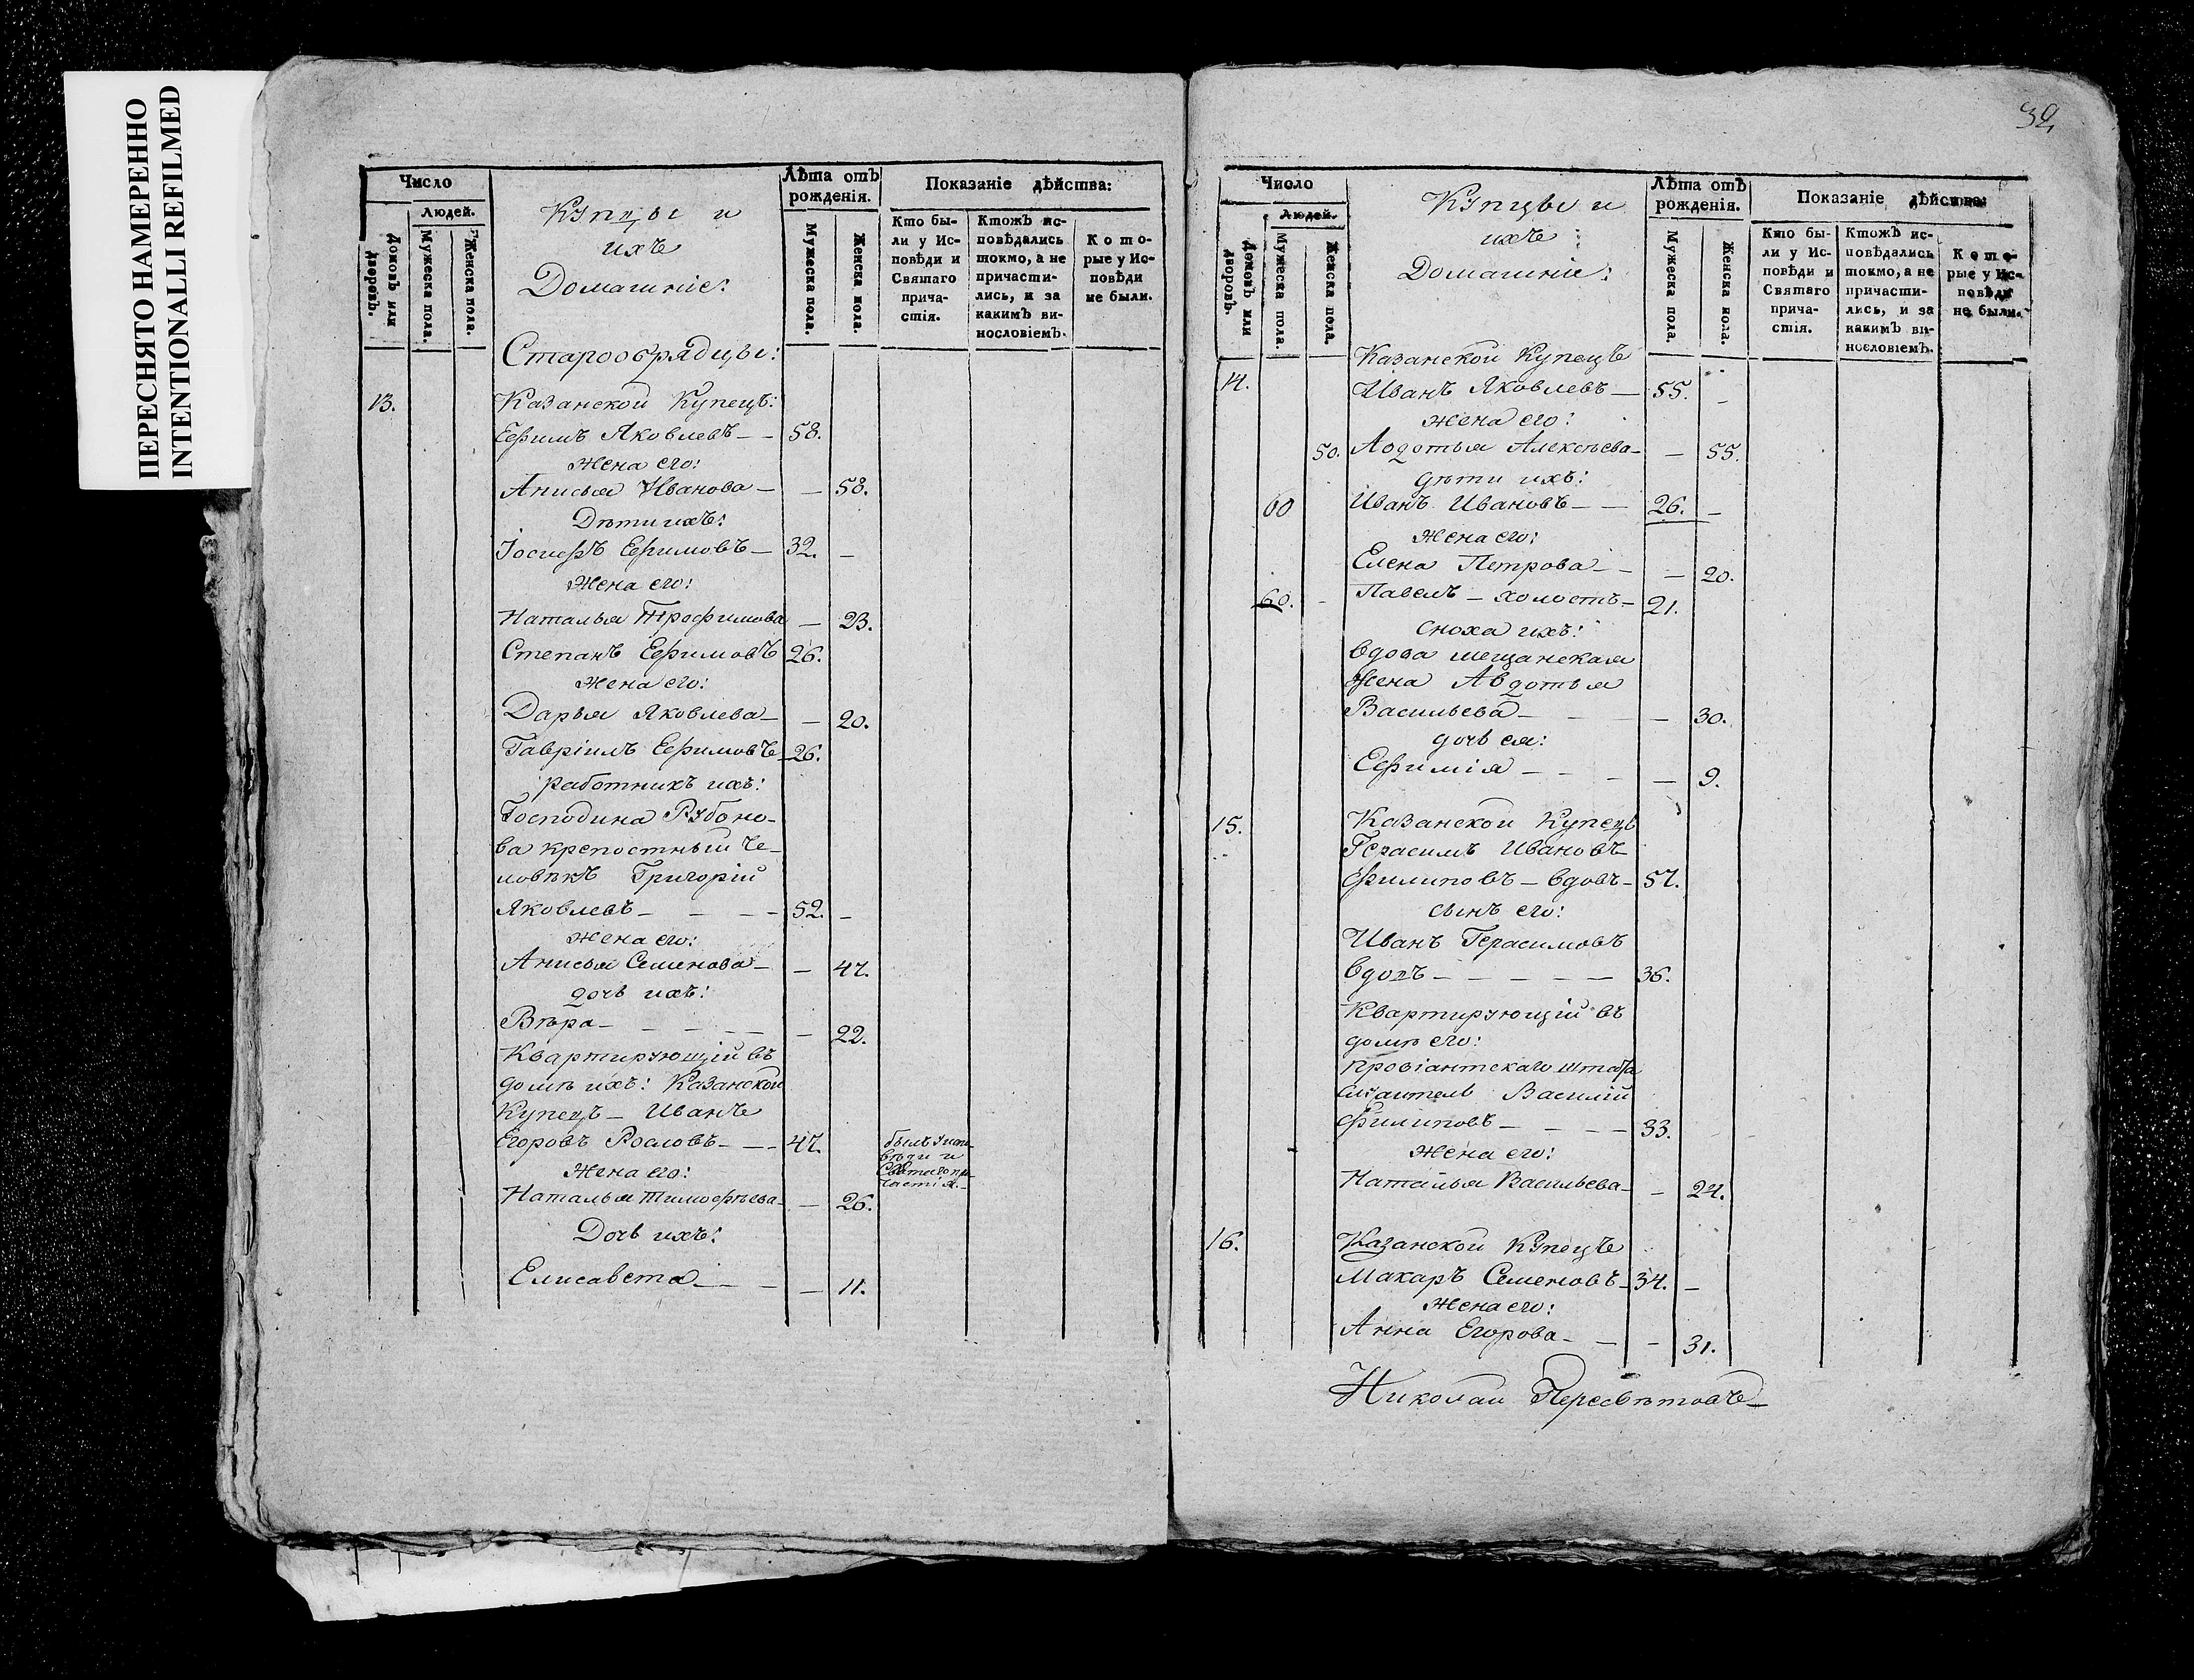 ПЕРЕСНЯТО НАМЕРЕННО
INTENTIONALLI REFILMED
Число
Людей.
Домовъ или дворовъ.
Мужеска пола.
Женска пола.
Купцы и
ихъ
Домашніе:
Лѣта отъ
рожденія.
Мужеска пола.
Женска пола.
Показаніе дѣйства:
Кто бы-
ли у Ис-
повѣди и
Святаго
прича-
стія.
Ктожъ ис-
повѣдались
токмо, а не
причасти-
лись, и за
какимъ ви-
нословіемъ.
Кото-
рые у Ис-
повѣди
не были.
Старообрядцы:
13. Казанской Купецъ:
Ефимъ Яковлевъ – – 58.
Жена его:
Анисья Иванова – – 58.
Дѣти ихъ:
Іосифъ Ефимовъ – 32. –
Жена его:
Наталья Трофимова – 23.
Степанъ Ефимовъ 26.
Жена его:
Дарья Яковлева – – 20.
Гавріилъ Ефимовъ 26.
работникъ ихъ:
Господина
ва крепостный че-
ловѣкъ Григорій
Яковлевъ – – – – 52. –
жена его:
Анисья Семенова – – 47.
дочь ихъ:
Вѣра – – – – – – 22.
Квартирующій въ
домѣ ихъ: Казанской
Купецъ – Иванъ
Егоровъ Рословъ – – – 47. былъ у испо
вѣди и
Святаго при
частія. –
Жена его:
Наталья Тимофѣева – – 26.
Дочь ихъ:
Елисавета – – – – 11.
32
Число
Людей.
Домовъ или дворовъ.
Мужеска пола.
Женска пола.
Купцы и
ихъ
Домашніе:
Лѣта отъ
рожденія.
Мужеска пола.
Женска пола.
Показаніе дѣйства:
Кто бы-
ли у Ис-
повѣди и
Святаго
прича-
стія.
Ктожъ ис-
повѣдались
токмо, а не
причасти-
лись, и за
какимъ ви-
нословіемъ.
Кото-
рые у Ис-
повѣди
не были.
Казанской Купецъ
14. Иванъ Яковлевъ – 55. –
жена его:
50. Авдотья Алексѣева – – 55.
дѣти ихъ:
60 Иванъ Ивановъ – – 26. –
жена его:
Елена Петрова – – – 20.
60. – Павелъ – холостъ – 21.
сноха ихъ:
вдова мещанская
жена Авдотья
Васильева – – – – 30.
дочь ея:
Ефимія – – – – 9.
15. Казанской Купецъ
Герасимъ Ивановъ
Филиповъ – вдовъ – 57.
сынъ его:
Иванъ Герасимовъ
вдовъ – – – – – 36.
Квартирующій въ
домѣ его:
провіантскаго штата
Василій
Филиповъ – – – – 33.
жена его:
Наталья Васильева – – 24.
16. Казанской Купецъ
Макаръ Семеновъ – 34. –
жена его:
Анна Егорова – – – 31.
Николай Пересвѣтовъ –